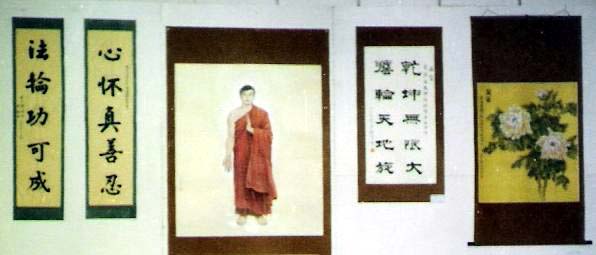 心怀真善忍
法輪功可成
乾坤無限大
灋輪天地旋